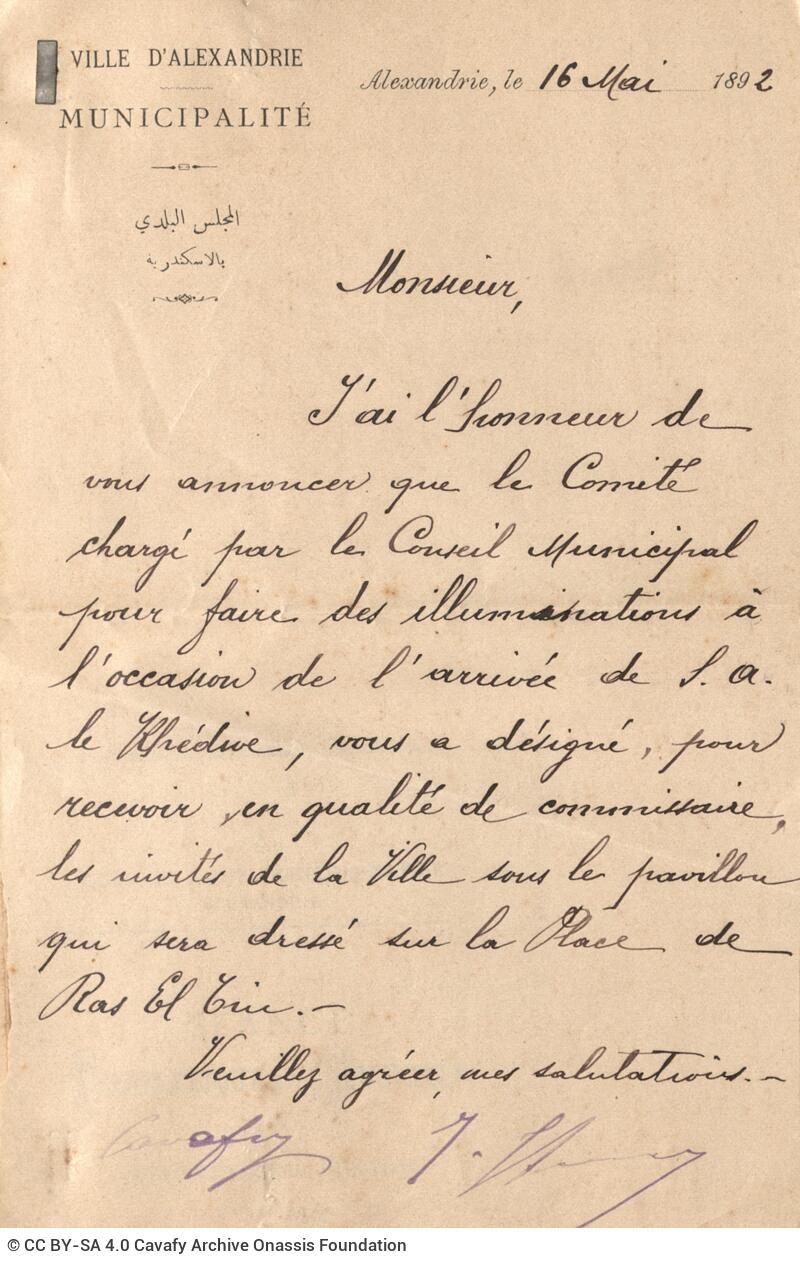 VILLE D'ALEXANDRIE
MUNICIPALITÉ
المجلس البلدي
بالاسكندرية
Alexandrie, le 16 Mai 1892
Monsieur,
J'ai l'honneur de
vous annoncer que le Comité
chargé par le Conseil Municipal
pour faire des illuminations à
l'occasion de l'arrivée de S. A.
le Khédive, vous a désigné, pour
recevoir, en qualité de commissaire,
les invités de la Ville sous le pavillon
qui sera dressé sur la Place de
Ras El Tin.—
Veuillez agréer, mes salutations.—
Cavafy
© CC BY-SA 4.0 Cavafy Archive Onassis Foundation